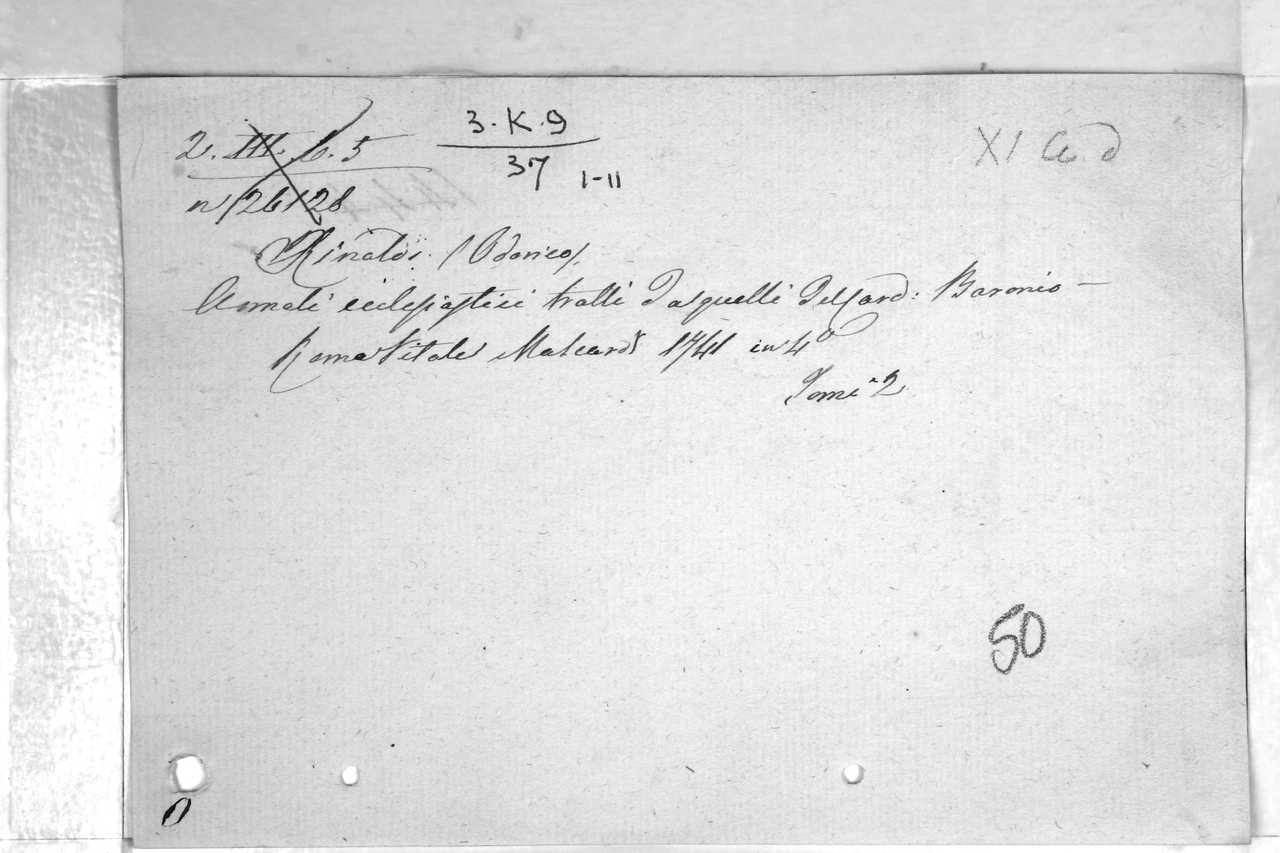 2. III. b. 5
3. K. 9
XI a d
37 I-II
n° 26/28
Rinaldi (Odorico).
Annali ecclesiastici tratti da quelli del Card: Baronio —
Roma Vitale Mascardi 1741 in 4°
Tomi 2
50
0